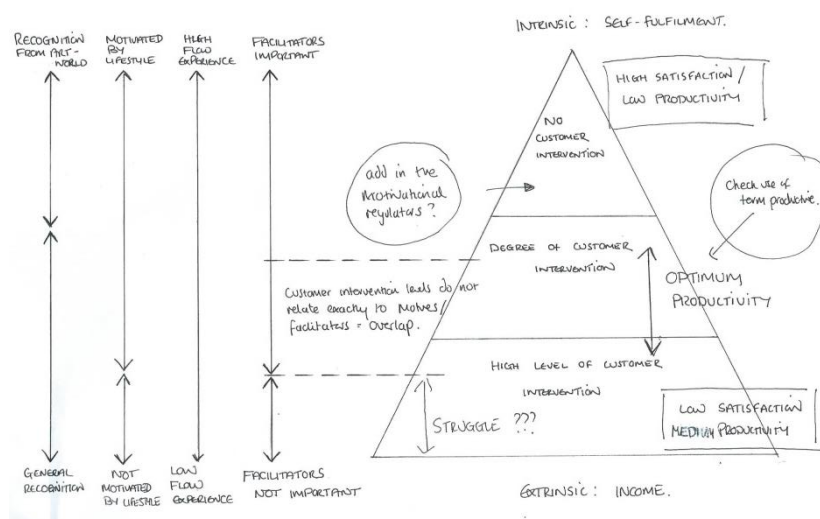 RECOGNITION
FROM ART-
WORLD
MOTIVATED
BY
LIFESTYLE
HIGH
FLOW
EXPERIENCE
FACILITATORS
IMPORTANT
INTRINSIC : SELF-FULFILMENT.
HIGH SATISFACTION /
LOW PRODUCTIVITY
NO
CUSTOMER
INTERVENTION
add in the
motivational
regulators ?
Check use of
term productive.
DEGREE OF CUSTOMER
INTERVENTION
OPTIMUM
PRODUCTIVITY
Customer intervention levels do not
relate exactly to motives/
facilitators = overlap.
HIGH LEVEL OF CUSTOMER
INTERVENTION
STRUGGLE ???
LOW SATISFACTION
MEDIUM PRODUCTIVITY
GENERAL
RECOGNITION
NOT
MOTIVATED
BY LIFESTYLE
LOW
FLOW
EXPERIENCE
FACILITATORS
NOT IMPORTANT
EXTRINSIC : INCOME.